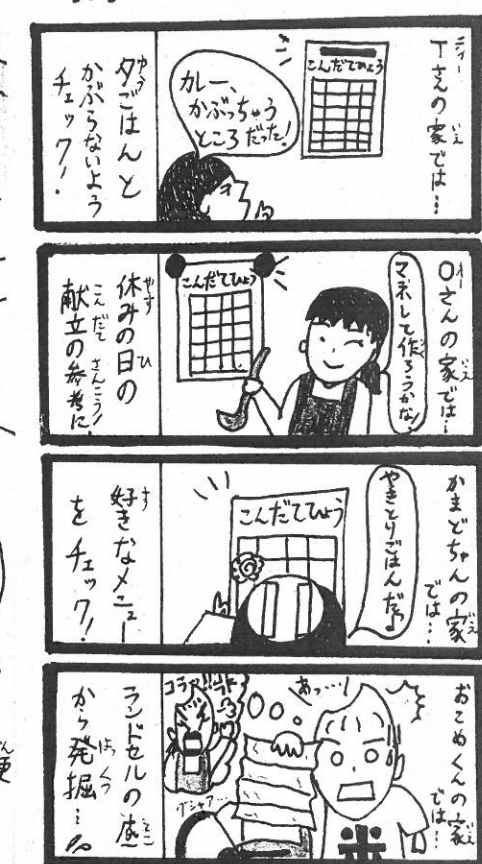 Tさんの家では…
こんだてひょう
カレー、
かぶっちゃう
ところだった!
夕ごはんと
かぶらないよう
チェック!
Oさんの家では…
マネして作ろうかな!
こんだてひょう
休みの日の
献立の参考に!
かまどちゃんの家
では…
やきとりごはんだぁ
こんだてひょう
好きなメニュー
をチェック!
おこめくんの家
では…
あっ…!
米
コラァ!!
グシャァ…
ランドセルの底
から発掘…